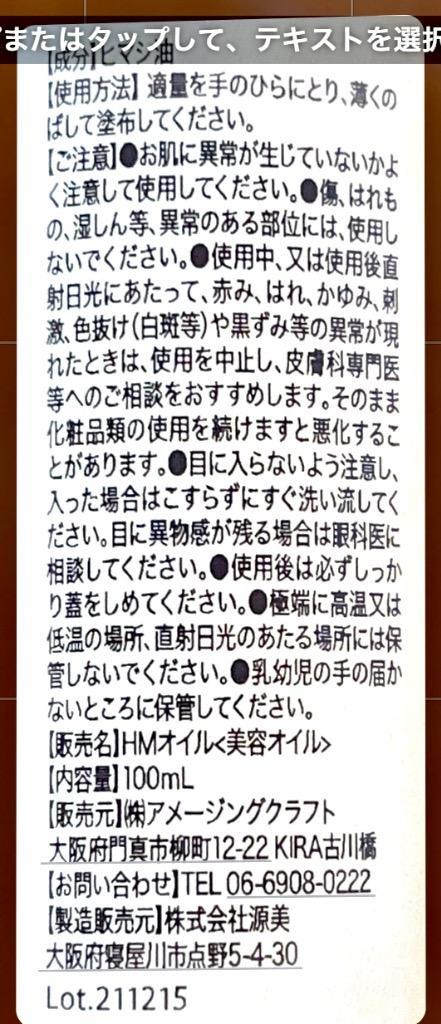 またはタップして、テキストを選択
【成分】ヒマシ油
【使用方法】適量を手のひらにとり、薄くの
ばして塗布してください。
【ご注意】●お肌に異常が生じていないかよ
く注意して使用してください。●傷、はれも
の、湿しん等、異常のある部位には、使用し
ないでください。●使用中、又は使用後直
射日光にあたって、赤み、はれ、かゆみ、刺
激、色抜け(白斑等)や黒ずみ等の異常が現
れたときは、使用を中止し、皮膚科専門医
等へのご相談をおすすめします。そのまま
化粧品類の使用を続けますと悪化するこ
とがあります。●目に入らないよう注意し、
入った場合はこすらずにすぐ洗い流してく
ださい。目に異物感が残る場合は眼科医に
相談してください。●使用後は必ずしっか
り蓋をしめてください。●極端に高温又は
低温の場所、直射日光のあたる場所には保
管しないでください。●乳幼児の手の届か
ないところに保管してください。
【販売名】HMオイル<美容オイル>
【内容量】100mL
【販売元】㈱アメージングクラフト
大阪府門真市柳町12-22 KIRA古川橋
【お問い合わせ】TEL 06-6908-0222
【製造販売元】株式会社源美
大阪府寝屋川市点野5-4-30
Lot.211215